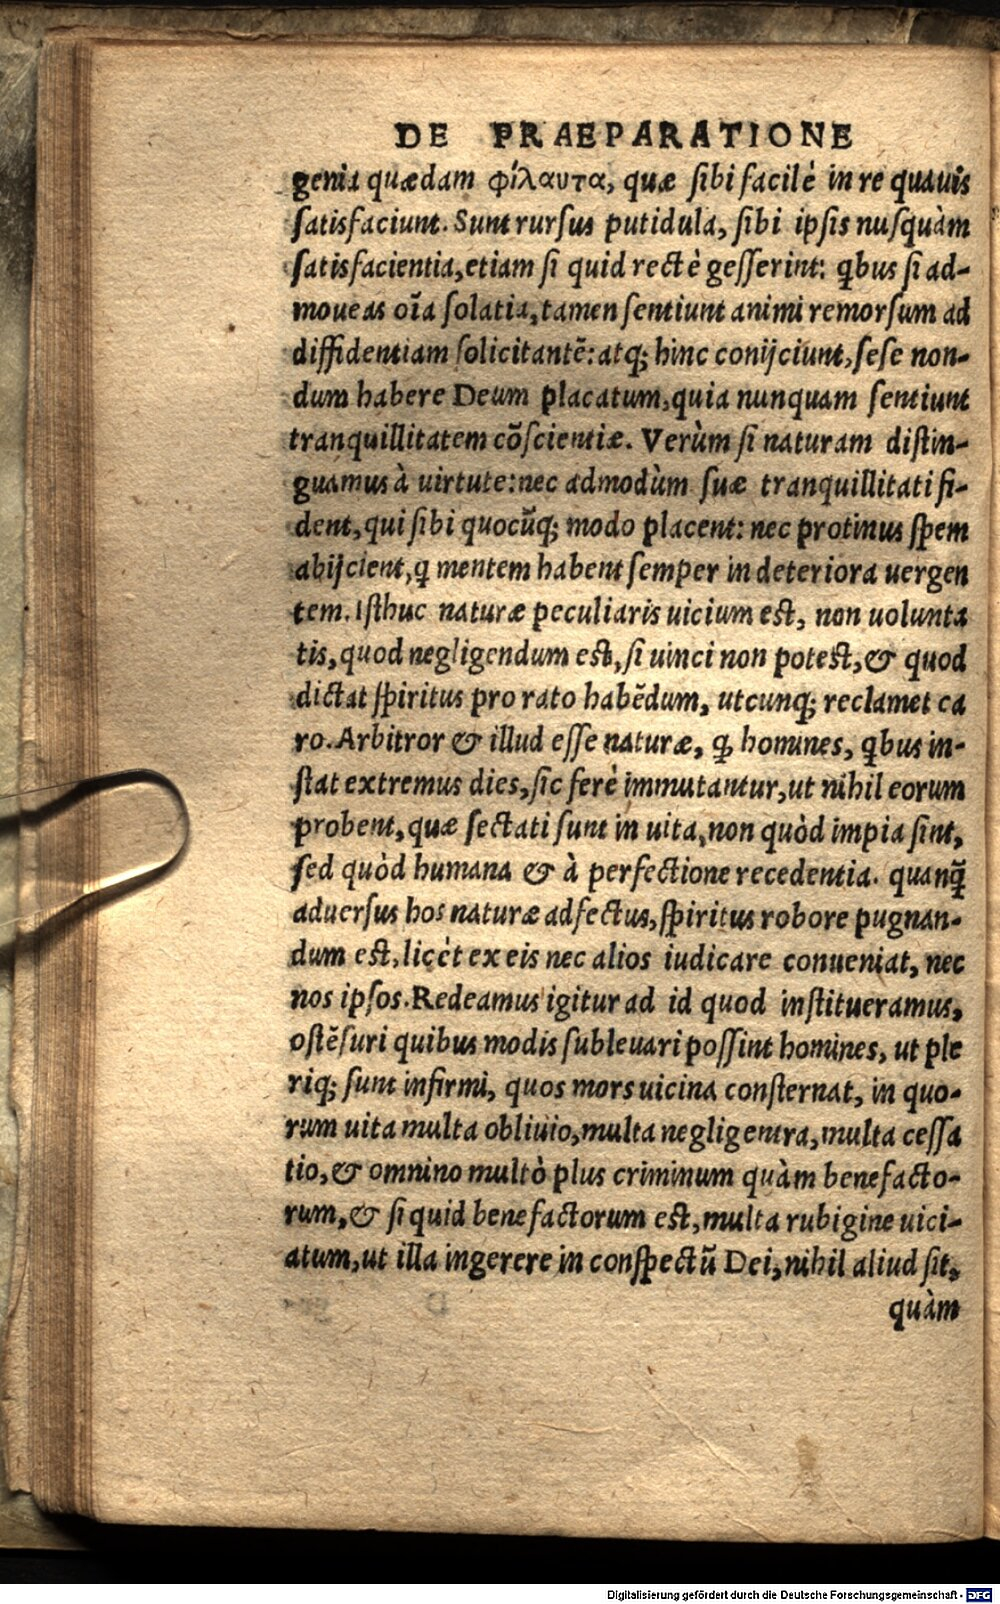 DE PRAEPARATIONE
genia quædam φίλαυτα, quæ sibi facilè in re quauis
satisfaciunt. Sunt rursus putidula, sibi ipsis nusquàm
satisfacientia, etiam si quid rectè gesserint: qbus si ad-
moueas oĩa solatia, tamen sentiunt animi remorsum ad
diffidentiam solicitantẽ: atq; hinc conijciunt, sese non-
dum habere Deum placatum, quia nunquam sentiunt
tranquillitatem cõscientiæ. Verùm si naturam distin-
guamus à uirtute: nec admodùm suæ tranquillitati fi-
dent, qui sibi quocũq; modo placent: nec protinus spem
abijcient, q mentem habent semper in deteriora uergen
tem. Isthuc naturæ peculiaris uicium est, non uolunta
tis, quod negligendum est, si uinci non potest, & quod
dictat spiritus pro rato habẽdum, utcunq; reclamet ca
ro. Arbitror & illud esse naturæ, ꝙ homines, qbus in-
stat extremus dies, sic ferè immutantur, ut nihil eorum
probent, quæ sectati sunt in uita, non quòd impia sint,
sed quòd humana & à perfectione recedentia. quanq̃
aduersus hos naturæ adfectus, spiritus robore pugnan-
dum est, licèt ex eis nec alios iudicare conueniat, nec
nos ipsos. Redeamus igitur ad id quod institueramus,
ostẽsuri quibus modis subleuari possint homines, ut ple
riq; sunt infirmi, quos mors uicina consternat, in quo-
rum uita multa obliuio, multa negligentia, multa cessa
tio, & omnino multò plus criminum quàm benefacto-
rum, & si quid benefactorum est, multa rubigine uici-
atum, ut illa ingerere in conspectũ Dei, nihil aliud sit,
quàm
Digitalisierung gefördert durch die Deutsche Forschungsgemeinschaft - DFG